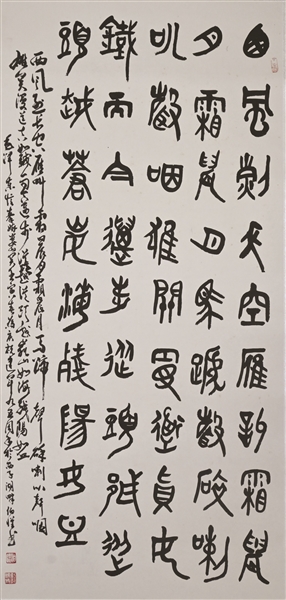 西風烈長空雁叫霜晨
月霜晨月馬蹄聲碎喇
叭聲咽雄關漫道真如
鐵而今邁步從頭越從
頭越蒼山如海殘陽如血
西風烈長空雁叫霜晨月霜晨月馬蹄聲碎喇叭聲咽
雄關漫道真如鐵而今邁步從頭越從頭越蒼山如海殘陽如血
毛澤東憶秦娥婁山關